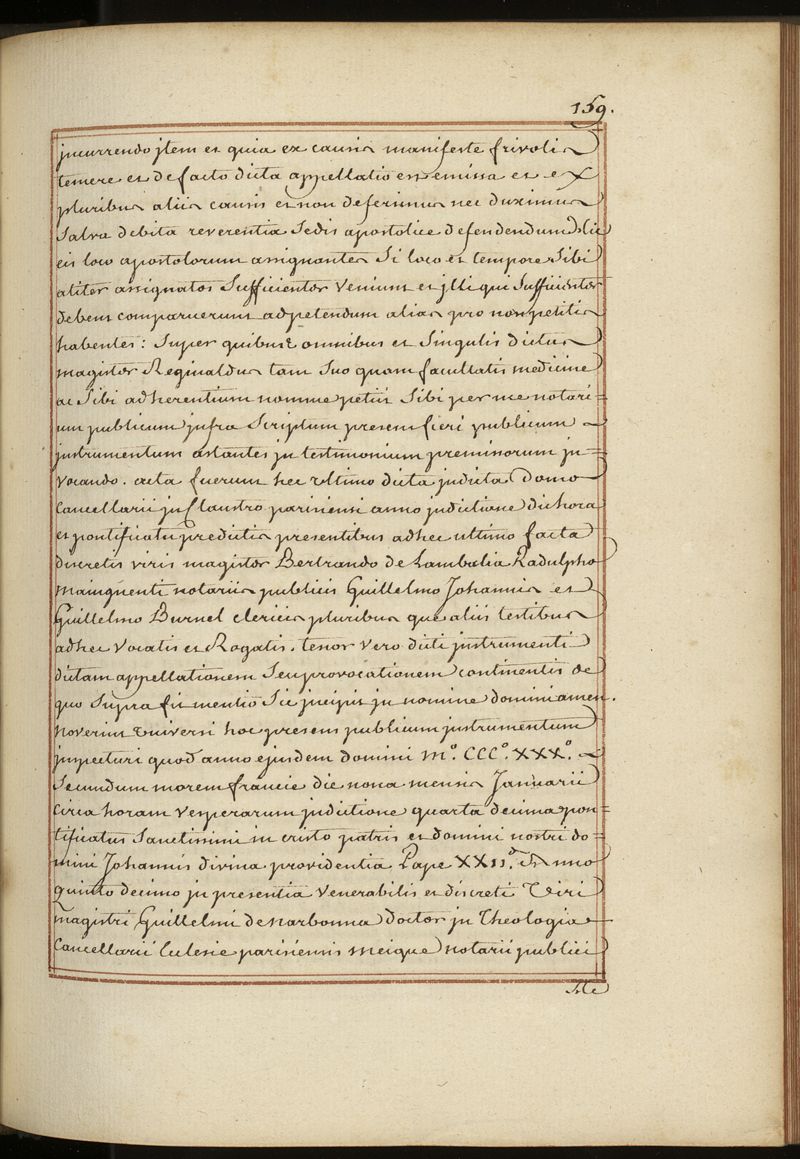 159.
jncurrendo jtem et quia ex causis manifeste frivolis
temere et de facto dicta appellatio est emissa et ex
pluribus aliis causis et non deferimus nec duximus
Salva debita reverentia Sedis apostolice deferendendum hic
eis loco apostolorum assignantes Si loco et tempore Sibi
aliter assignatos Sufficienter Venium et jlli qui Sufficienter
debent comparuerunt adpetendum alias pro non petitis
habentes: Super quibus omnibus et Singulis dictus
magister Reginaldus tam Suo quam facultatis medicine
ac Sibi adherentium nomine petiit Sibi per me notari-
um publicum jnfra Scriptum presens fieri publicum
jnstrumentum astantes jn testimonium premissorum jn-
vocando. acta fuerunt hec ultimo dicta judicta Domo
Cancellarii jn Claustro parisiensi anno jndictione die hora
et pontificatu predictis presentibus ad hec ultimo facta
discretis viris magister Bertrando de Lambalia Radulpho
Mainquenti notariis publicis Guillelmo Johannis et
Guillelmo Burnel clericis pluribus que aliis testibus
adhec Vocatis et Rogatis. tenor vero dicti jnstrumenti
dictam appellationem Seu provocationem continentis de
quo Supra fit mentio Sic jncipit jn nomine domini amen.
Noverint universi hoc presens publicum jnstrumentum
jnspecturi quod anno ejusdem domini M.º CCC.º XXX.º
Secundum morem francie die nona mensis Januarii
Circa horam Vesperarum jndictione quarta decima pon-
tificatus Sanctissimi in cristo patris et domini nostri do-
mini Johannis divina providentia Pape XXII.di Anno
quinto decimo jn presentia Venerabilis et discreti Viri
magistri Guillelmi de Narbonna doctor jn Theologia
Cancellarii Eclesie parisiensis meique notarii publici